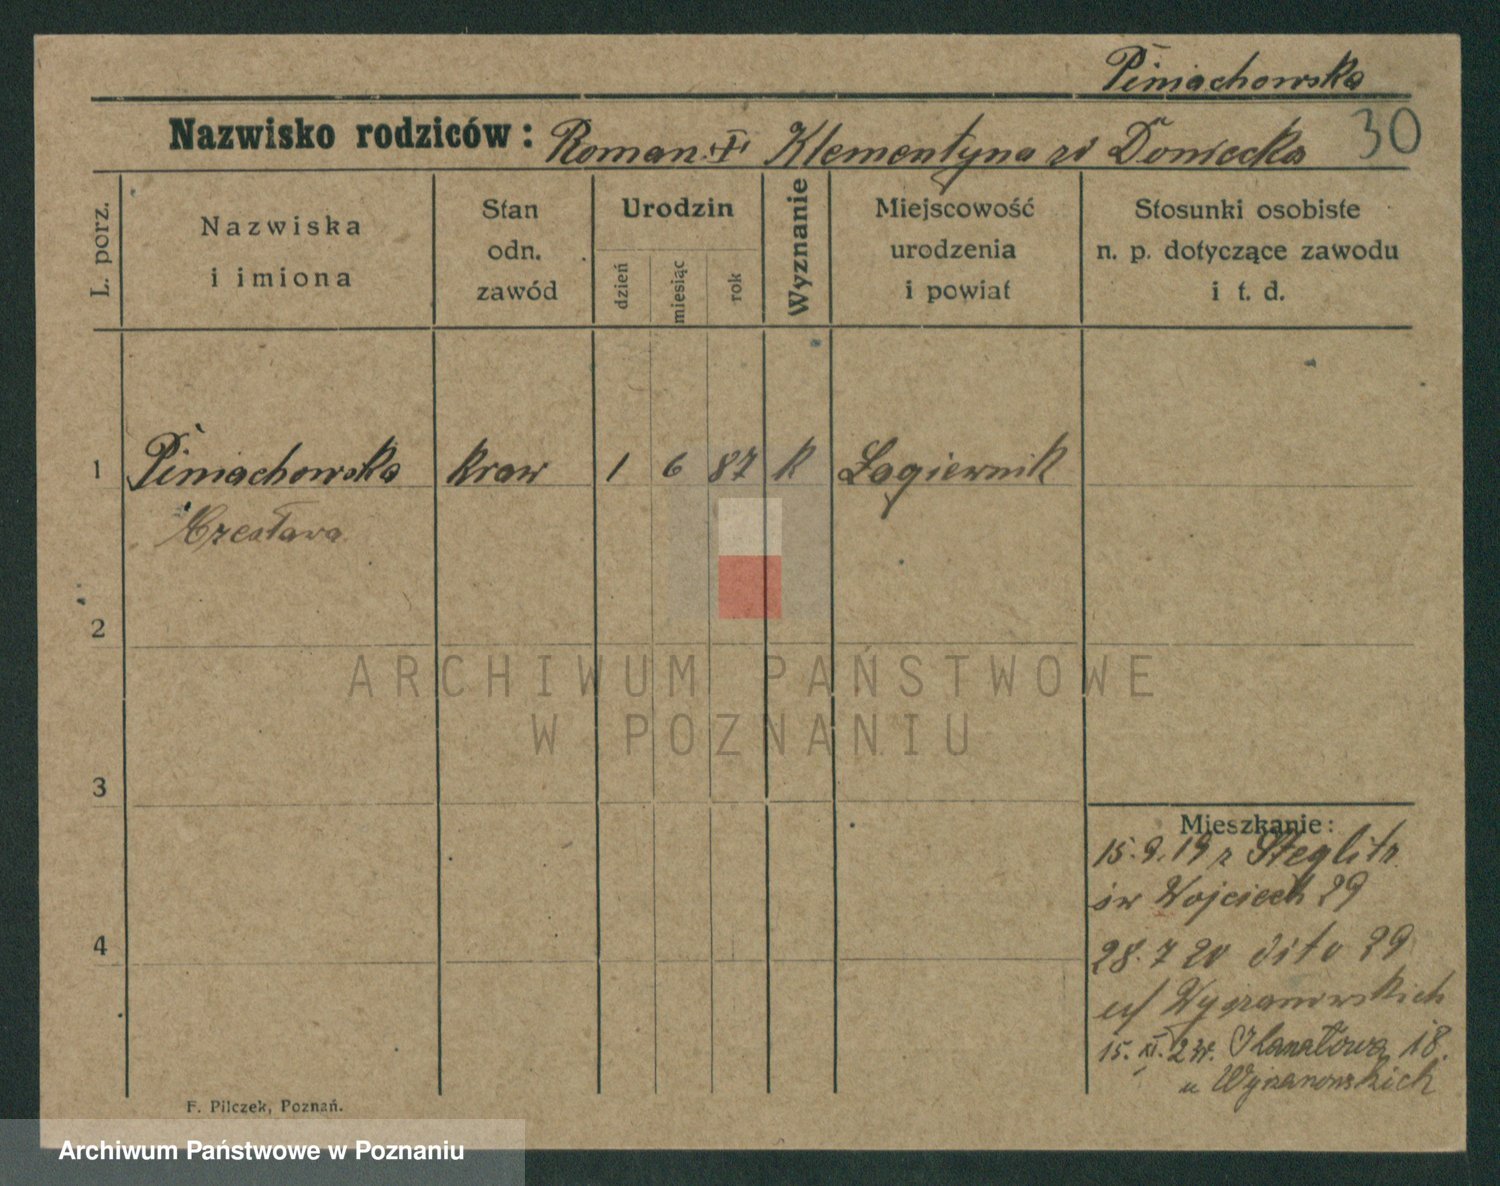 Piniachowska
Nazwisko rodziców: Roman i Klementyna zd Doniecka 30
L. porz.
Nazwiska
i imiona
Stan
odn.
zawód
Urodzin
dzień
miesiąc
rok
Wyznanie
Miejscowość
urodzenia
i powiat
Stosunki osobiste
n. p. dotyczące zawodu
i t. d.
1 Piniachowska kraw 1 6 87 k Łagiewnik
Czesława
2
3
4
ARCHIWUM PAŃSTWOWE
W POZNANIU
Mieszkanie:
15.9.19 z Steglitz
św Wojciech 29
28.7 20 dito 29
u/
15. XI. 24. 18.
u
F. Pilczek, Poznań.
Archiwum Państwowe w Poznaniu